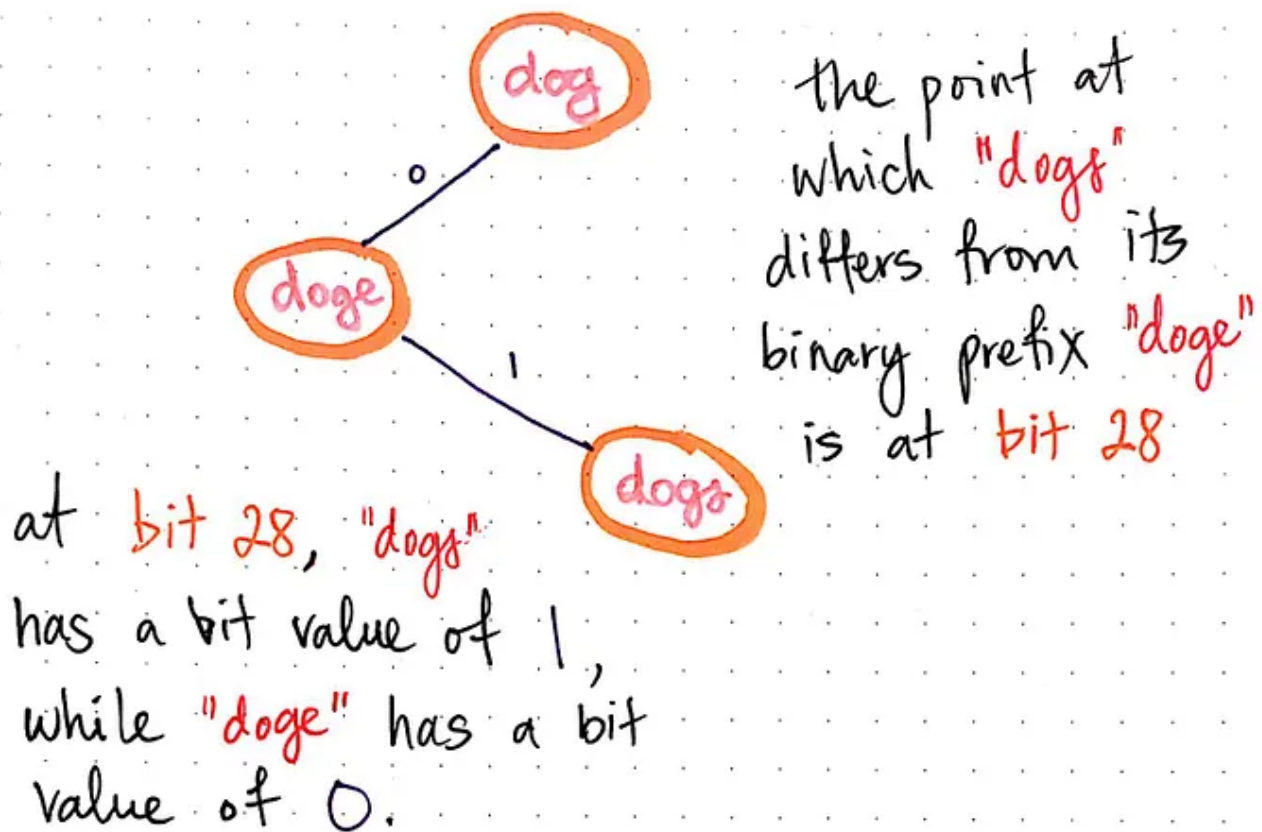 dog
0
doge
1
dogs
the point at
which "dogs"
differs from its
binary prefix "doge"
is at bit 28
at bit 28, "dogs"
has a bit value of 1,
while "doge" has a bit
value of 0.